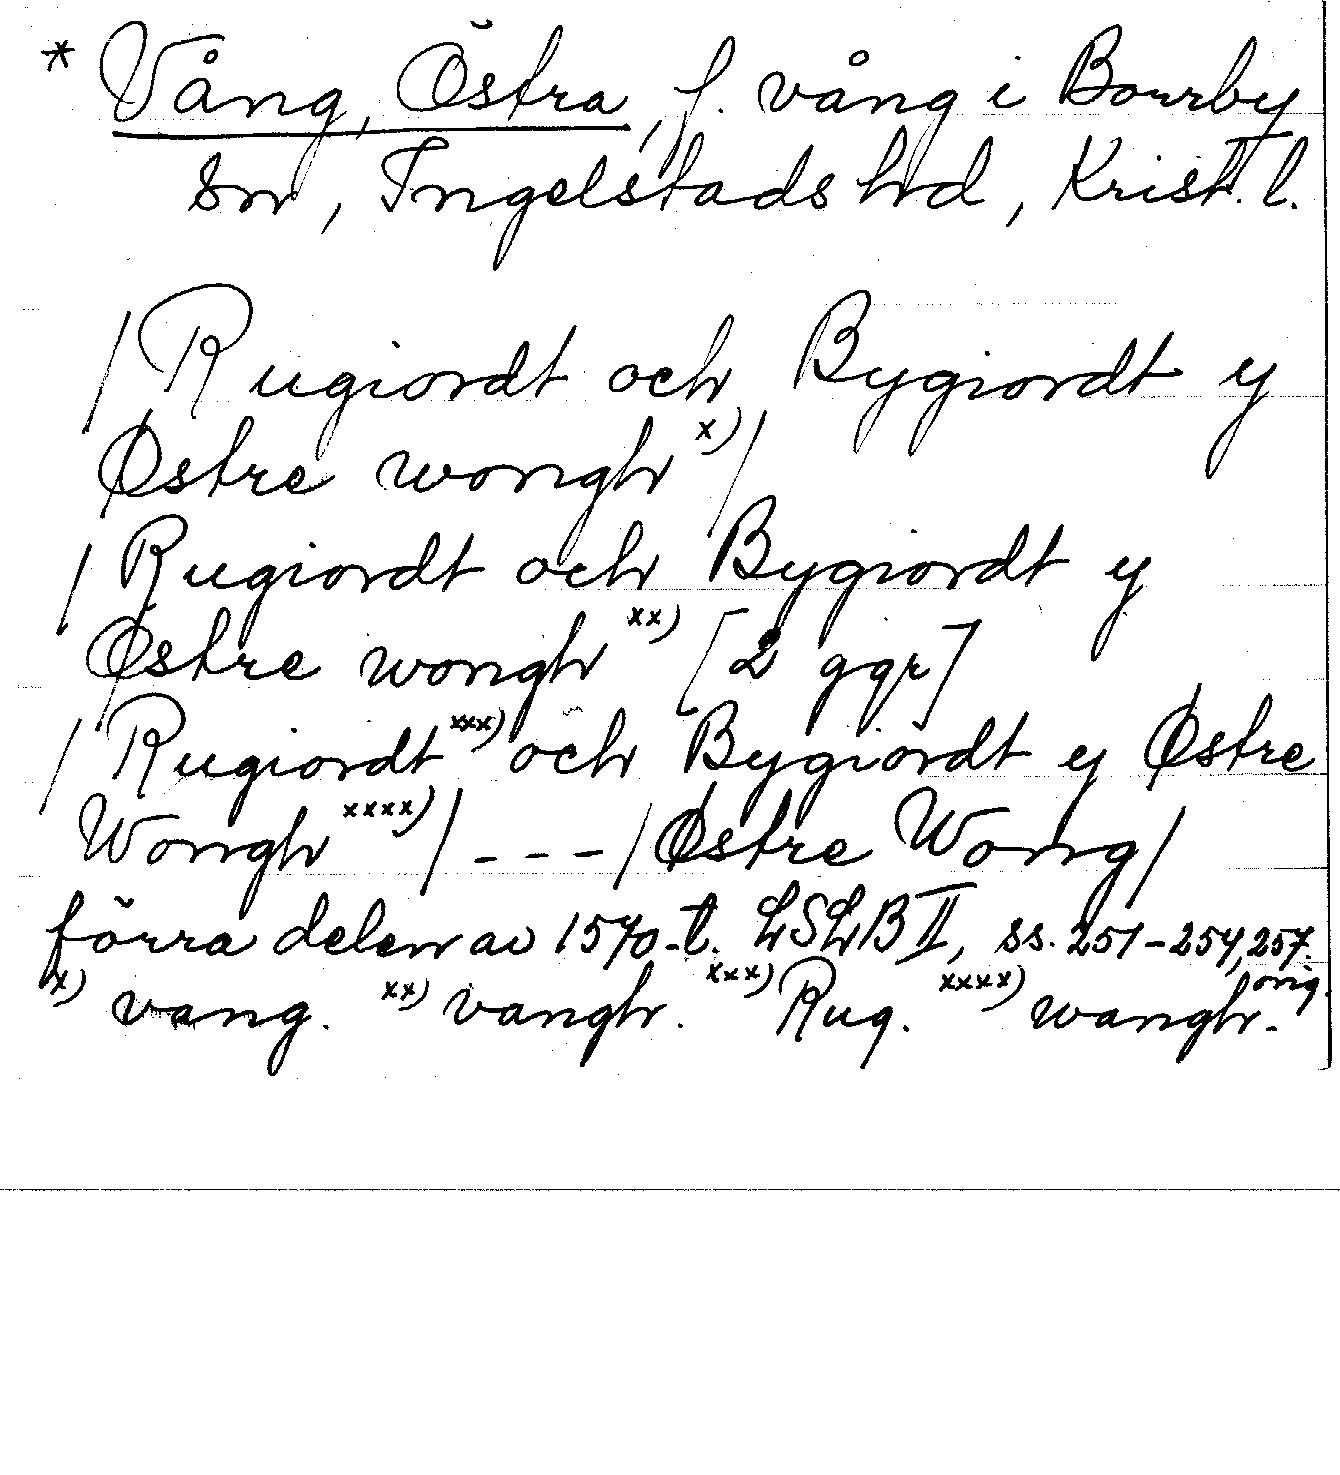 * Vång, Östra, f. vång i Borrby
sn, Ingelstads hd, Krist. l.
/Rugiordt och Bygiordt y
Østre wongh x)/
/Rugiordt och Bygiordt y
Østre wongh xx) [2 ggr]
/Rugiordt xxx) och Bygiordt y Østre
Wongh xxxx)/ - - - /Østre Wong/
förra delen av 1570-t. LSLB II, ss. 251-254, 257.
x) vang. xx) vangh. xxx) Rug. xxxx) wangh. orig.